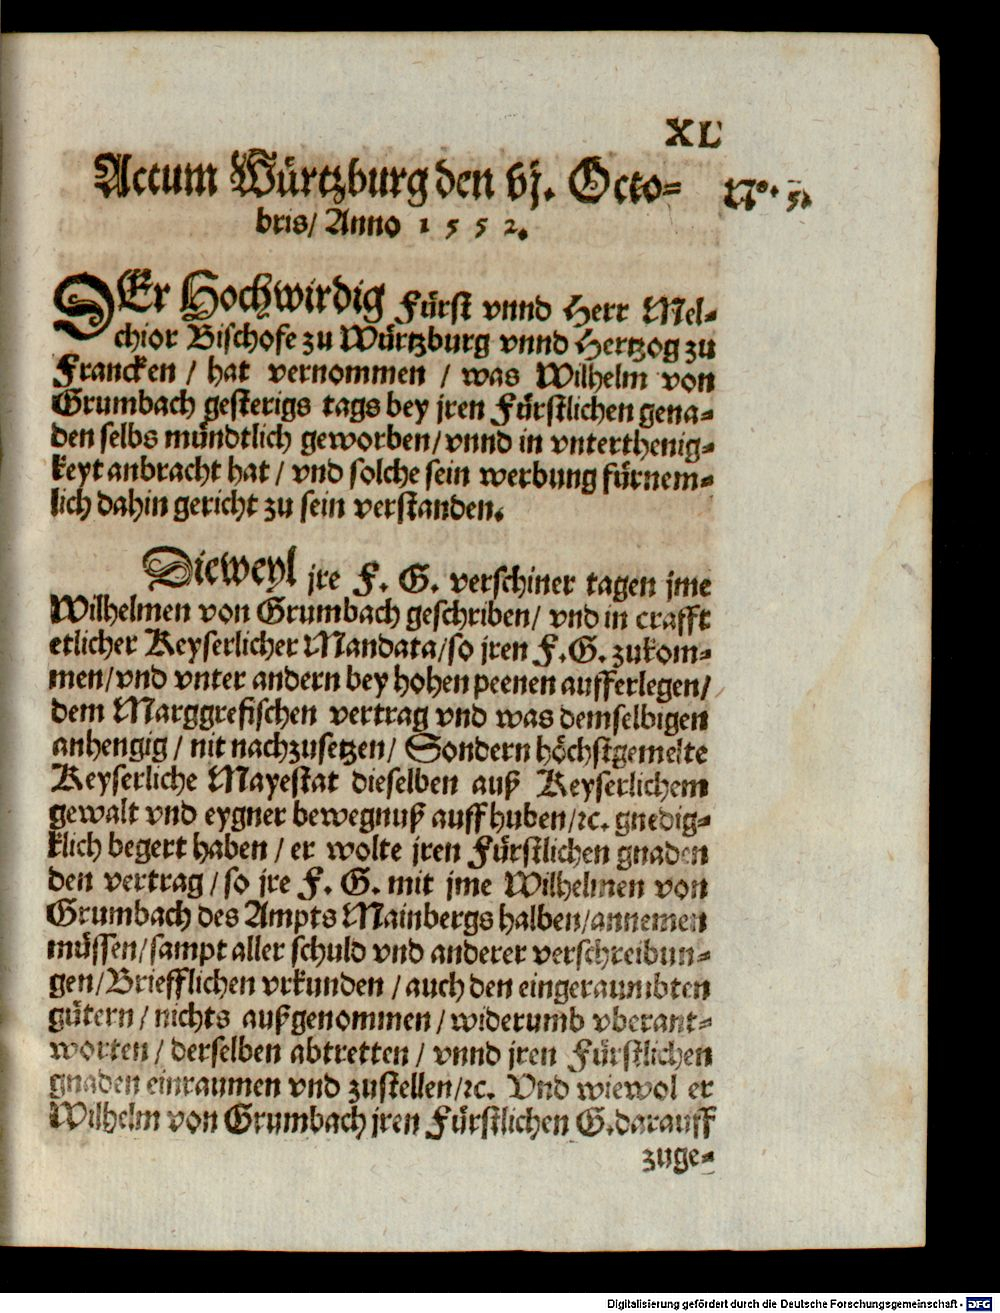 XL
Actum Würtzburg den vj. Octo=
bris/ Anno 1552.
Nº. 5.
DEr Hochwirdig Fürst vnnd Herr Mel=
chior Bischofe zu Würtzburg vnnd Hertzog zu
Francken / hat vernommen / was Wilhelm von
Grumbach gesterigs tags bey jren Fürstlichen gena=
den selbs mündtlich geworben/ vnnd in vnterthenig=
keyt anbracht hat / vnd solche sein werbung fürnem=
lich dahin gericht zu sein verstanden.
Dieweyl jre F. G. verschiner tagen jme
Wilhelmen von Grumbach geschriben/ vnd in crafft
etlicher Keyserlicher Mandata/so jren F.G. zukom=
men/vnd vnter andern bey hohen peenen aufferlegen/
dem Marggrefischen vertrag vnd was demselbigen
anhengig / nit nachzusetzen/ Sondern höchstgemelte
Keyserliche Mayestat dieselben auß Keyserlichem
gewalt vnd eygner bewegnuß auffhuben/ꝛc. gnedig=
klich begert haben / er wolte jren Fürstlichen gnaden
den vertrag / so jre F. G. mit jme Wilhelmen von
Grumbach des Ampts Mainbergs halben/annemen
müssen/sampt aller schuld vnd anderer verschreibun=
gen/Briefflichen vrkunden / auch den eingeraumbten
gütern / nichts außgenommen / widerumb vberant=
worten / derselben abtretten / vnnd jren Fürstlichen
gnaden einraumen vnd zustellen/ꝛc. Vnd wiewol er
Wilhelm von Grumbach jren Fürstlichen G.darauff
zuge=
Digitalisierung gefördert durch die Deutsche Forschungsgemeinschaft - DFG